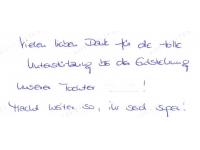 Vielen lieben Dank für die tolle
Unterstützung bei der Entstehung
unserer Tochter !
Macht weiter so, ihr seid super!